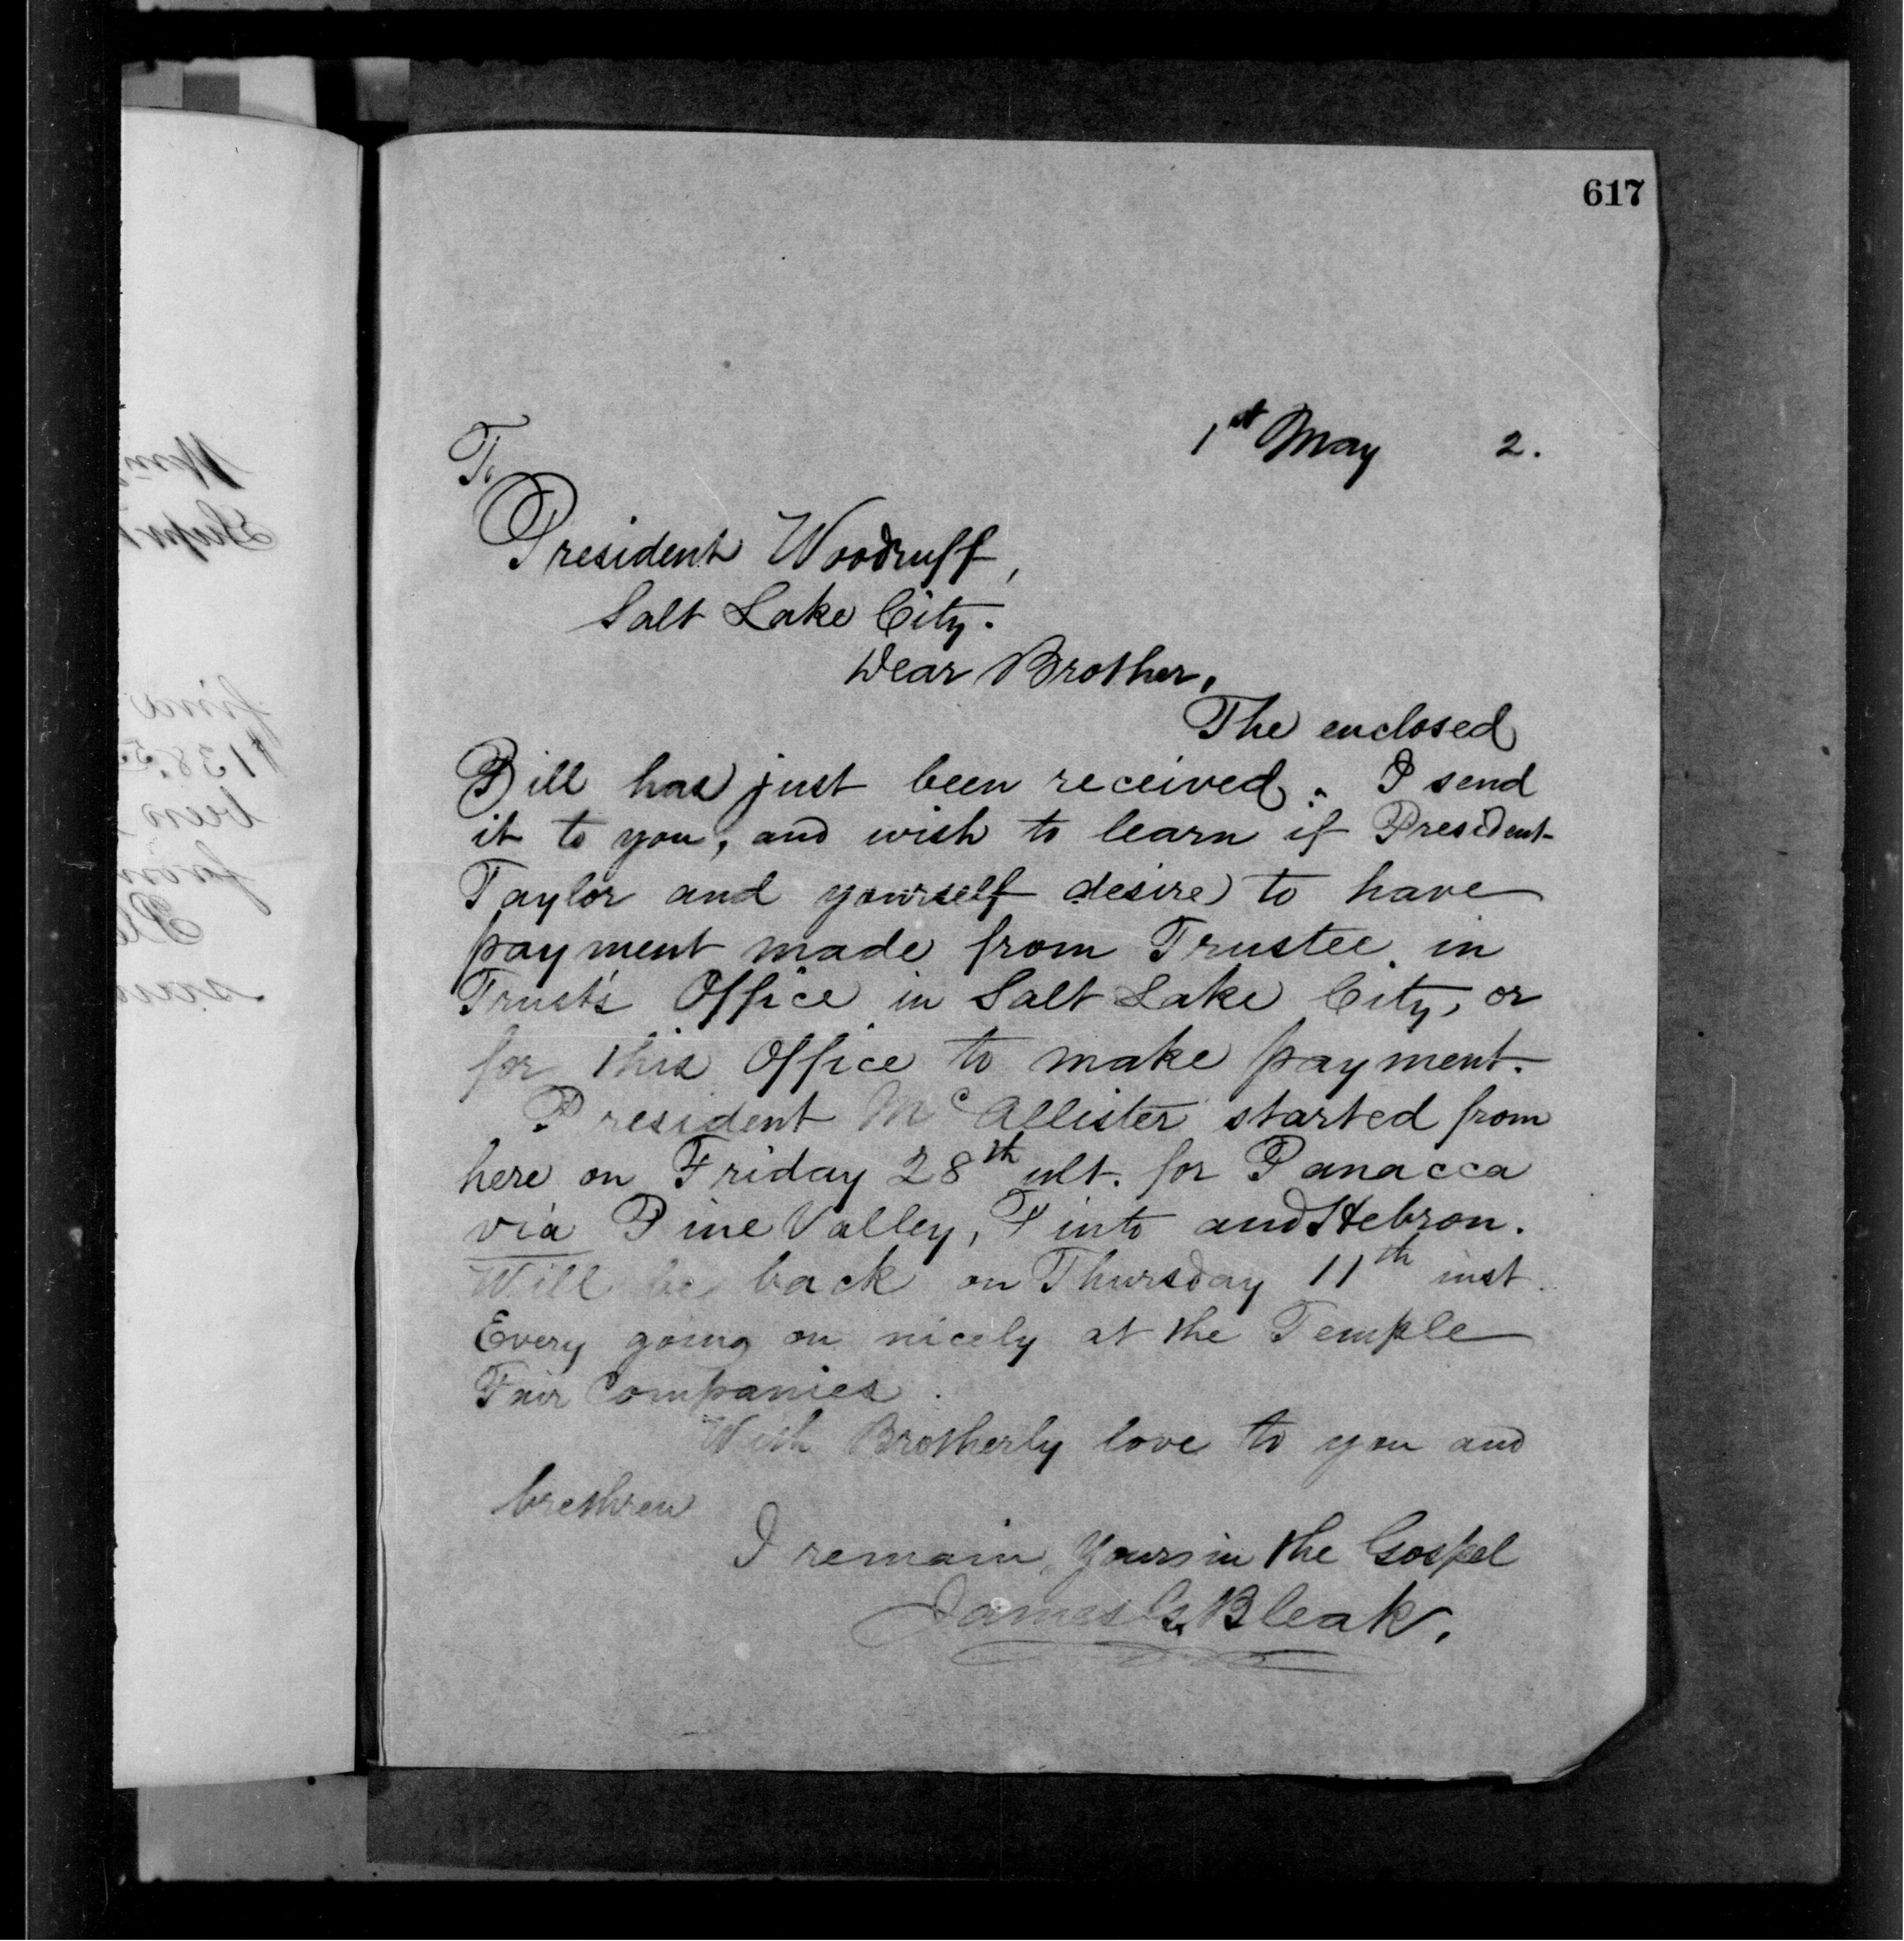 617
1st May 2.
To
President Woodruff,
Salt Lake City.
Dear Brother,
The enclosed
Bill has just been received. I send
it to you, and wish to learn if President
Taylor and yourself desire to have
payment made from Trustee in
Trust's Office in Salt Lake City, or
for this Office to make payment.
President McAllister started from
here on Friday 28th ult. for Panacca
via Pine Valley, Pinto and Hebron.
Will be back on Thursday 11th inst.
Every going on nicely at the Temple
Fair Companies.
With Brotherly love to you and
brethren
I remain, Yours in the Gospel
James G. Bleak.